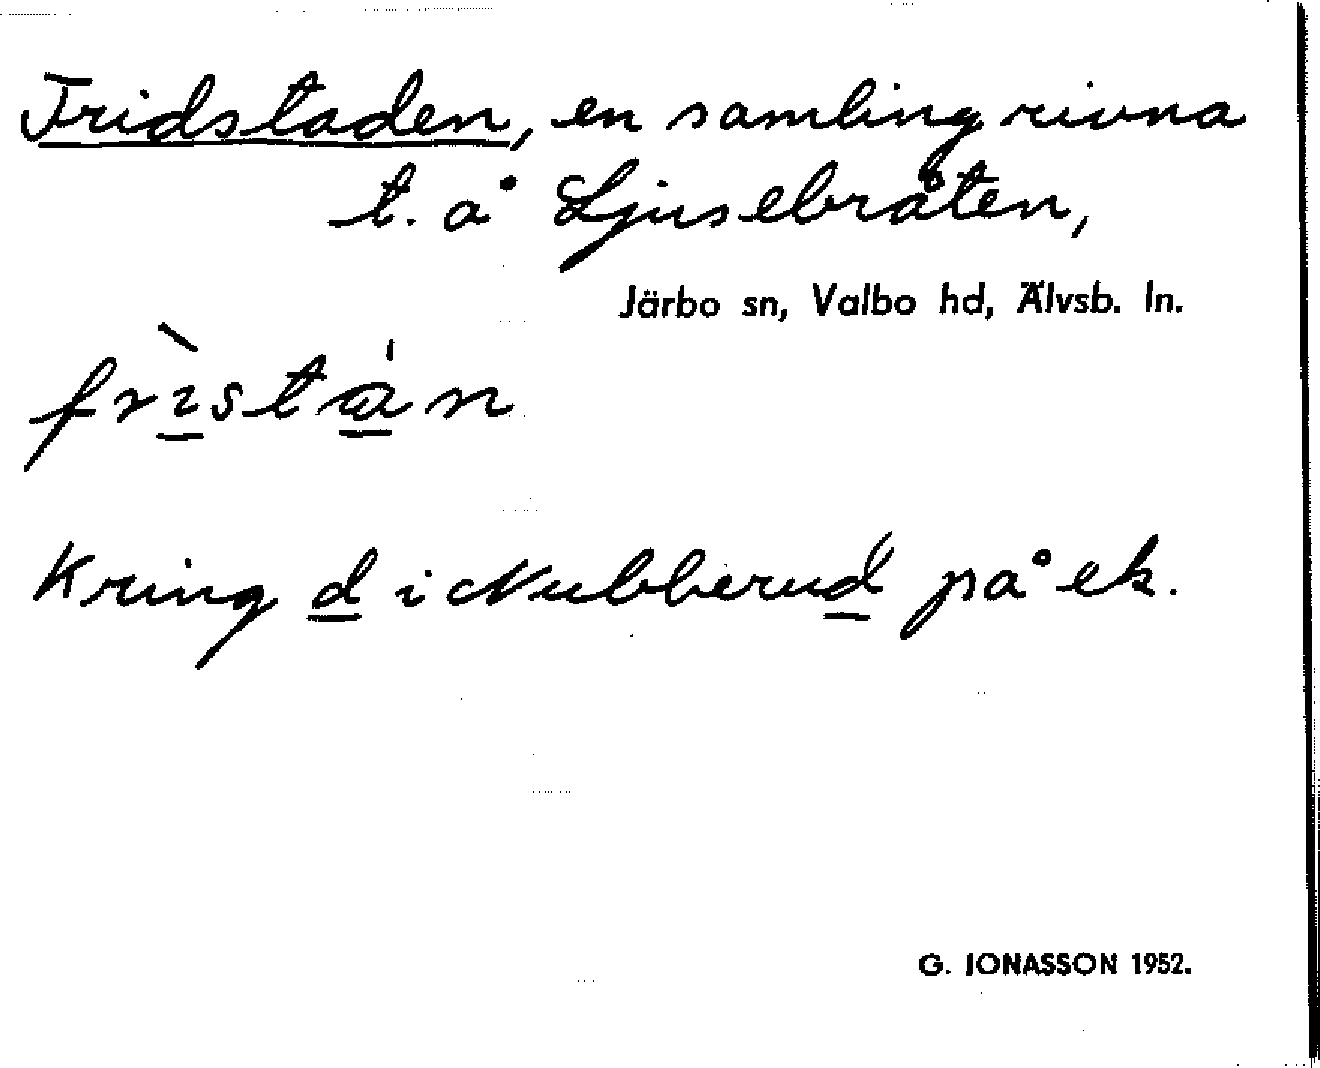 Fridstaden, en samling rivna
t. å Ljusebråten,
Järbo sn, Valbo hd, Älvsb. ln.
fristan
Kring d i Nubberud på ek.
G. JONASSON 1952.